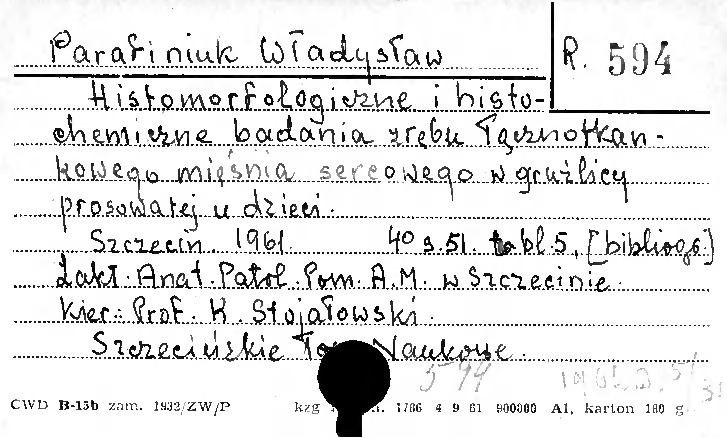 Parafiniuk Władysław
R. 594
Histomorfologiczne i histo-
chemiczne badania zrębu łącznotkan-
kowego mięśnia sercowego w gruźlicy
prosowatej u dzieci.
Szczecin 1961. 4° s. 51. tabl. 5, [bibliogr.]
Zakł. Anat. Patol. Pom. A.M. w Szczecinie.
Kier.: Prof. K. Stojałowski.
Szczecińskie Tow. Naukowe.
599
CWD B-15b zam. 1932/ZW/P kzg 1786 4 9 61 900000 A1, karton 180 g